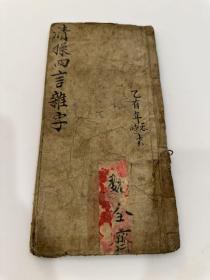 清採四言雜字
乙酉年
魏全